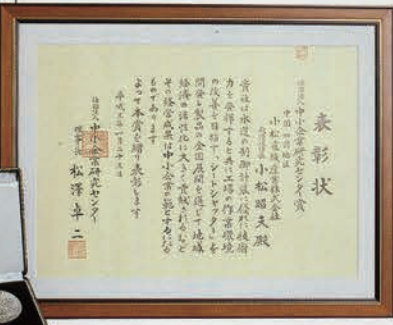 表彰状
社団法人中小企業研究センター賞
中国・四国地区
小松電機産業株式会社
小松昭夫殿
貴社は水道の制御計装に優れた技術
力を発揮すると共に工場の作業環境
の改善を目指す、シートシャッターを
開発し製品の全国展開を通じて地域
経済の活性化に大きく貢献されるなど
その経営成果は中小企業の範とするに足る
ものであります
よって本賞を贈り表彰します
平成三年一月二十三日
社団法人中小企業研究センター
理事長 松澤卓二